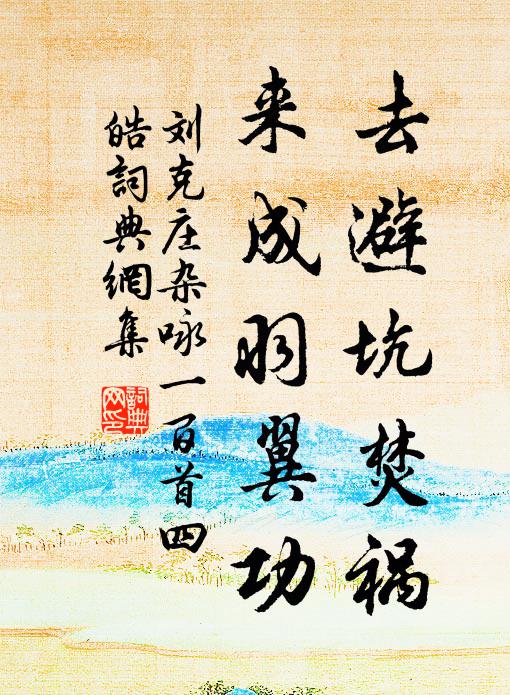 去避坑焚祸
来成羽翼功
刘克庄杂咏一百首四
皓詞典網集
詞典
网印